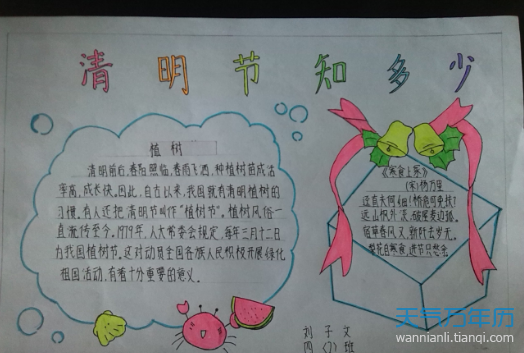 清明节知多少
植树
清明前后,春阳照临,春雨飞洒,种植树苗成活
率高,成长快。因此,自古以来,我国就有清明植树的
习惯。有人还把清明节叫作“植树节”。植树风俗一
直流传至今。1979年,人大常委会规定,每年三月十二日
为我国植树节。这对动员全国各族人民积极开展绿化
祖国活动,有着十分重要的意义。
《寒食上冢》
(宋)杨万里
迳直夫何细!桥危可免扶?
远山枫外淡,破屋麦边孤。
宿草春风又,新阡去岁无。
梨花自寒食,进节只愁余
刘子文
四(小)班
天气万年历
wannianli.tianqi.com